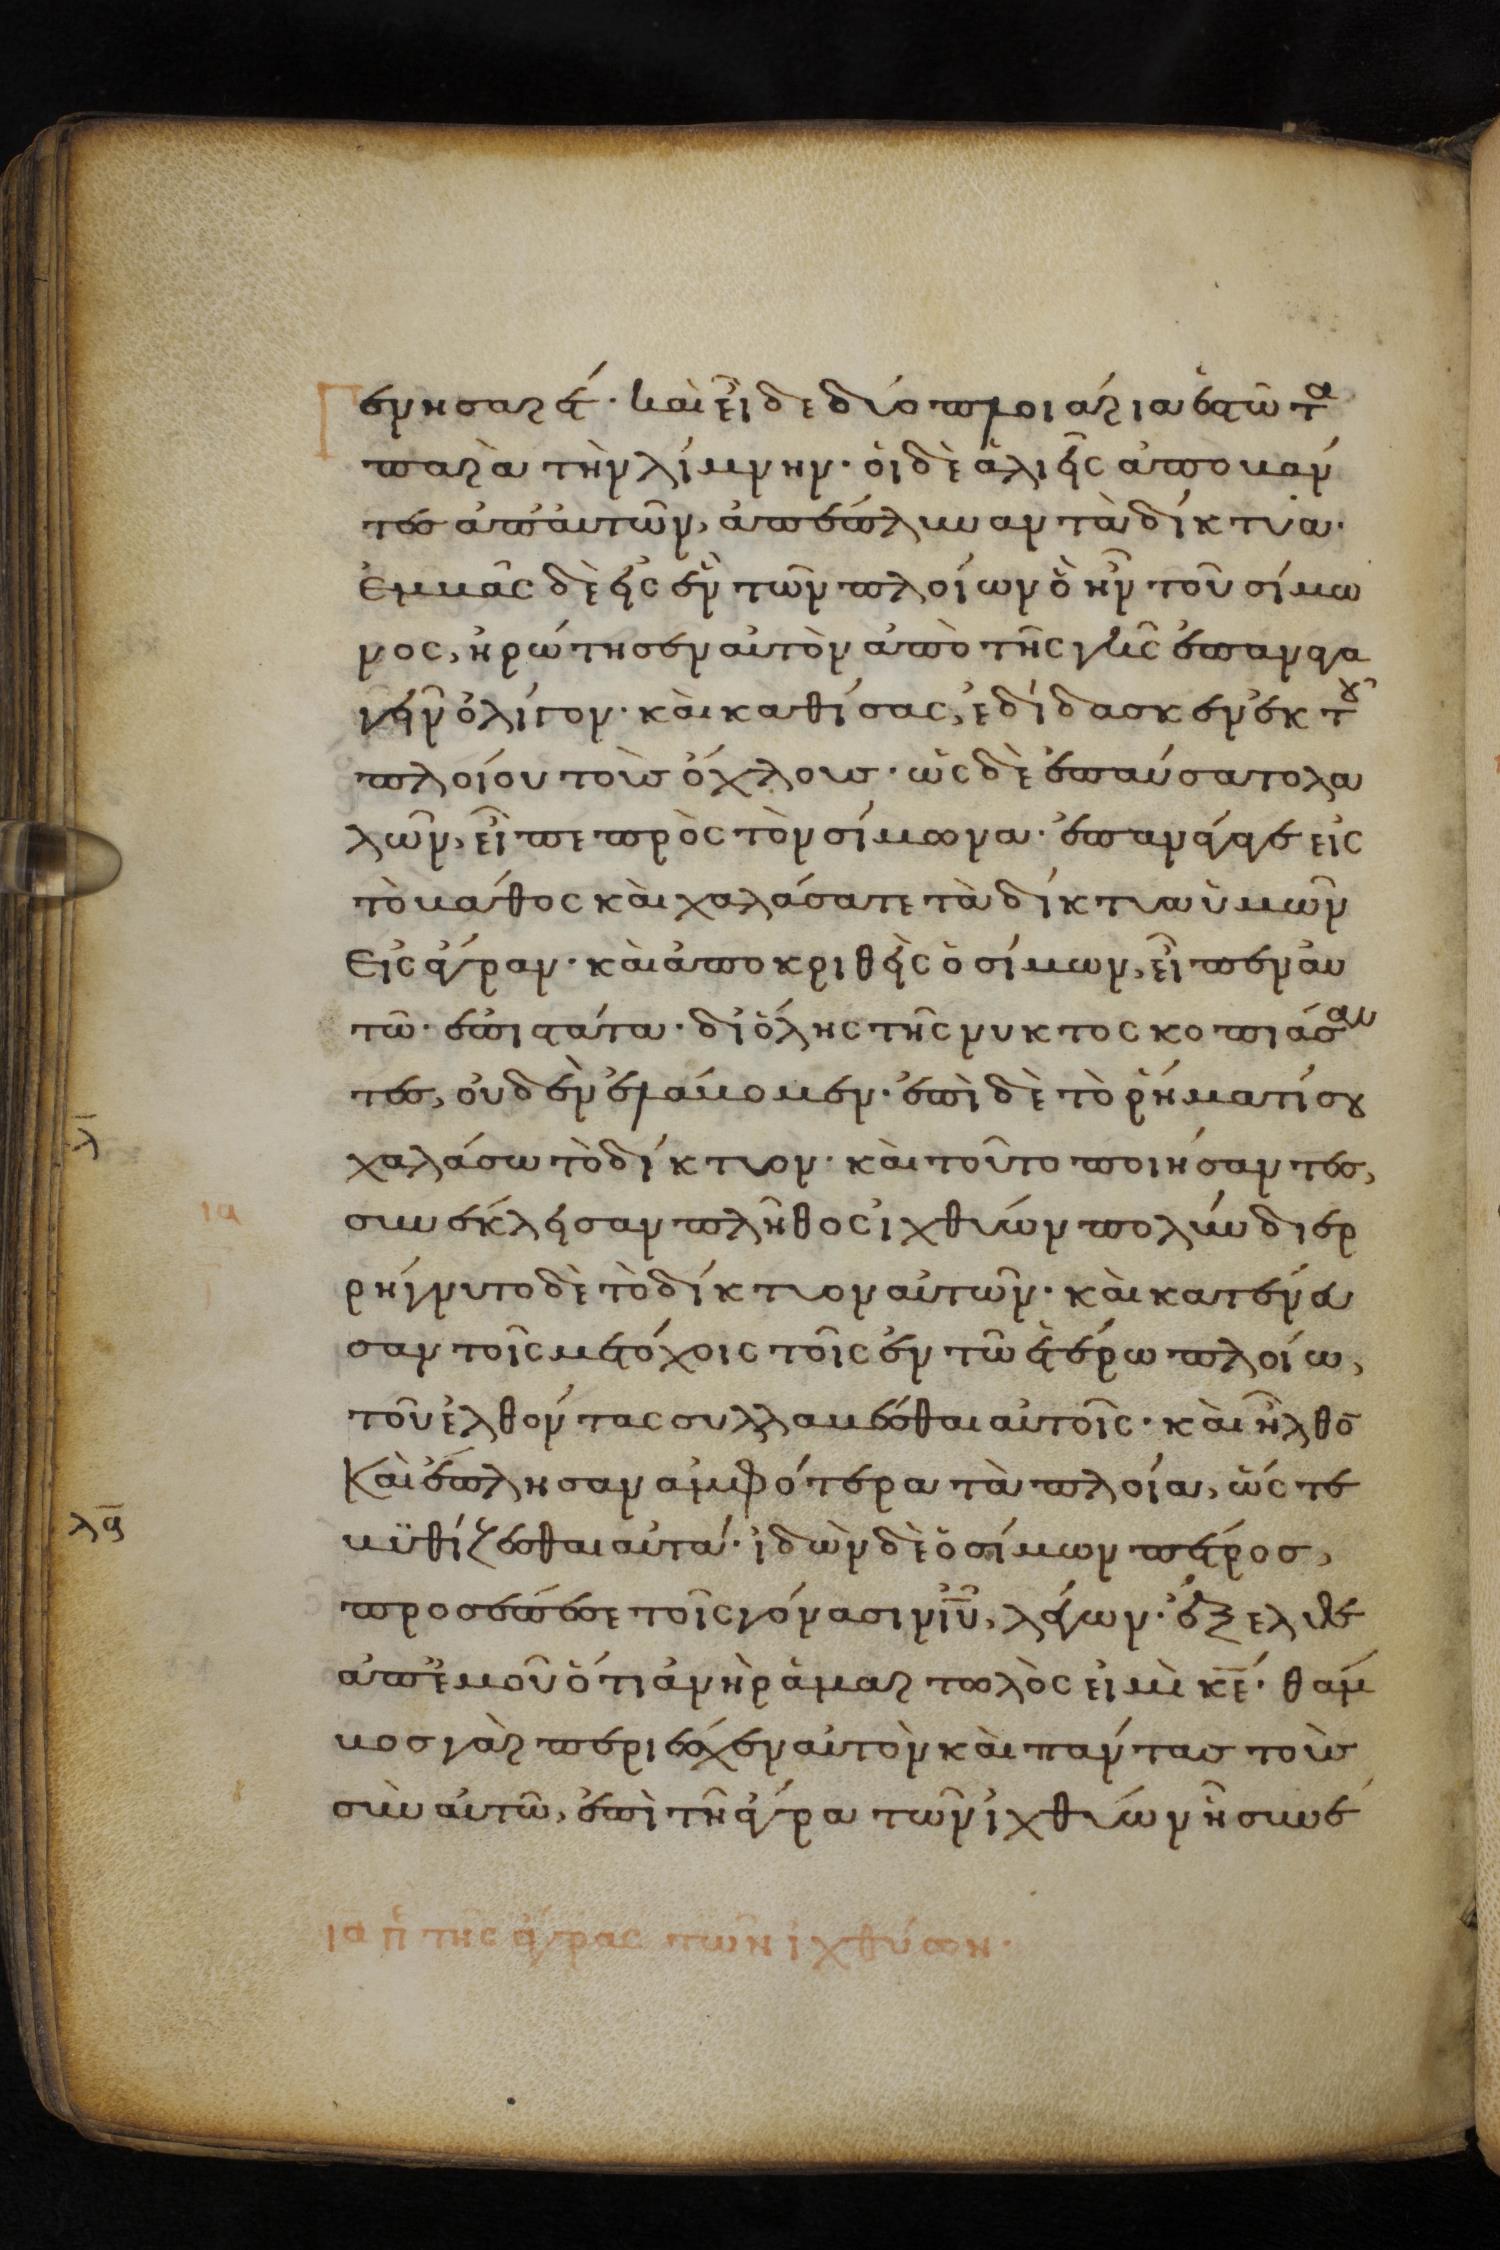 Γεννησαρέτ· καὶ εἶδε δύο πλοιάρια ἑστῶτα
παρὰ τὴν λίμνην· οἱ δὲ ἁλιεῖς ἀποβάν
τες ἀπ' αὐτῶν, ἀπέπλυναν τὰ δίκτυα·
Ἐμβὰς δὲ εἰς ἓν τῶν πλοίων ὃ ἦν τοῦ σίμω
νος, ἠρώτησεν αὐτὸν ἀπὸ τῆς γῆς ἐπαναγα
γεῖν ὀλίγον· καὶ καθίσας, ἐδίδασκεν ἐκ τοῦ
πλοίου τοὺς ὄχλους· ὡς δὲ ἐπαύσατο λα
λῶν, εἶπε πρὸς τὸν σίμωνα· ἐπανάγαγε εἰς
τὸ βάθος καὶ χαλάσατε τὰ δίκτυα ὑμῶν
Εἰς ἄγραν· καὶ ἀποκριθεὶς ὁ σίμων, εἶπεν αὐ
τῶ· ἐπιστάτα· δι' ὅλης τῆς νυκτος κοπιάσαν
τες, οὐδὲν ἐλάβομεν· ἐπὶ δὲ τὸ ῥήματί σου
χαλάσω τὸ δίκτυον· καὶ τοῦτο ποιήσαντες,
συνέκλεισαν πλῆθος ἰχθύων πολύ· διερ
ρήγνυτο δὲ τὸ δίκτυον αὐτῶν· καὶ κατένευ
σαν τοῖς μετόχοις τοῖς ἐν τῶ ἑτέρω πλοίω,
τοῦ ἐλθόντας συλλαβέσθαι αὐτοῖς· καὶ ἦλθο̄
Καὶ ἔπλησαν ἀμφότερα τὰ πλοῖα, ὥστε
βυθίζεσθαι αὐτά· ἰδὼν δὲ ὁ σίμων πέτρος,
προσέπεσε τοῖς γόνασιν ἰῦ, λέγων· ἔξελθε
ἀπ' ἐμοῦ ὅτι ἀνὴρ ἁμαρτωλός εἰμὶ κε̄· θάμ
βος γὰρ περιέσχεν αὐτὸν καὶ πάντας τοὺς
σὺν αὐτῶ, ἐπὶ τῆ ἄγρα τῶν ἰχθύων ἧ συνέ
λ̄
ια
λᾱ
ια π τῆς ἄγρας τῶν ἰχθύων·